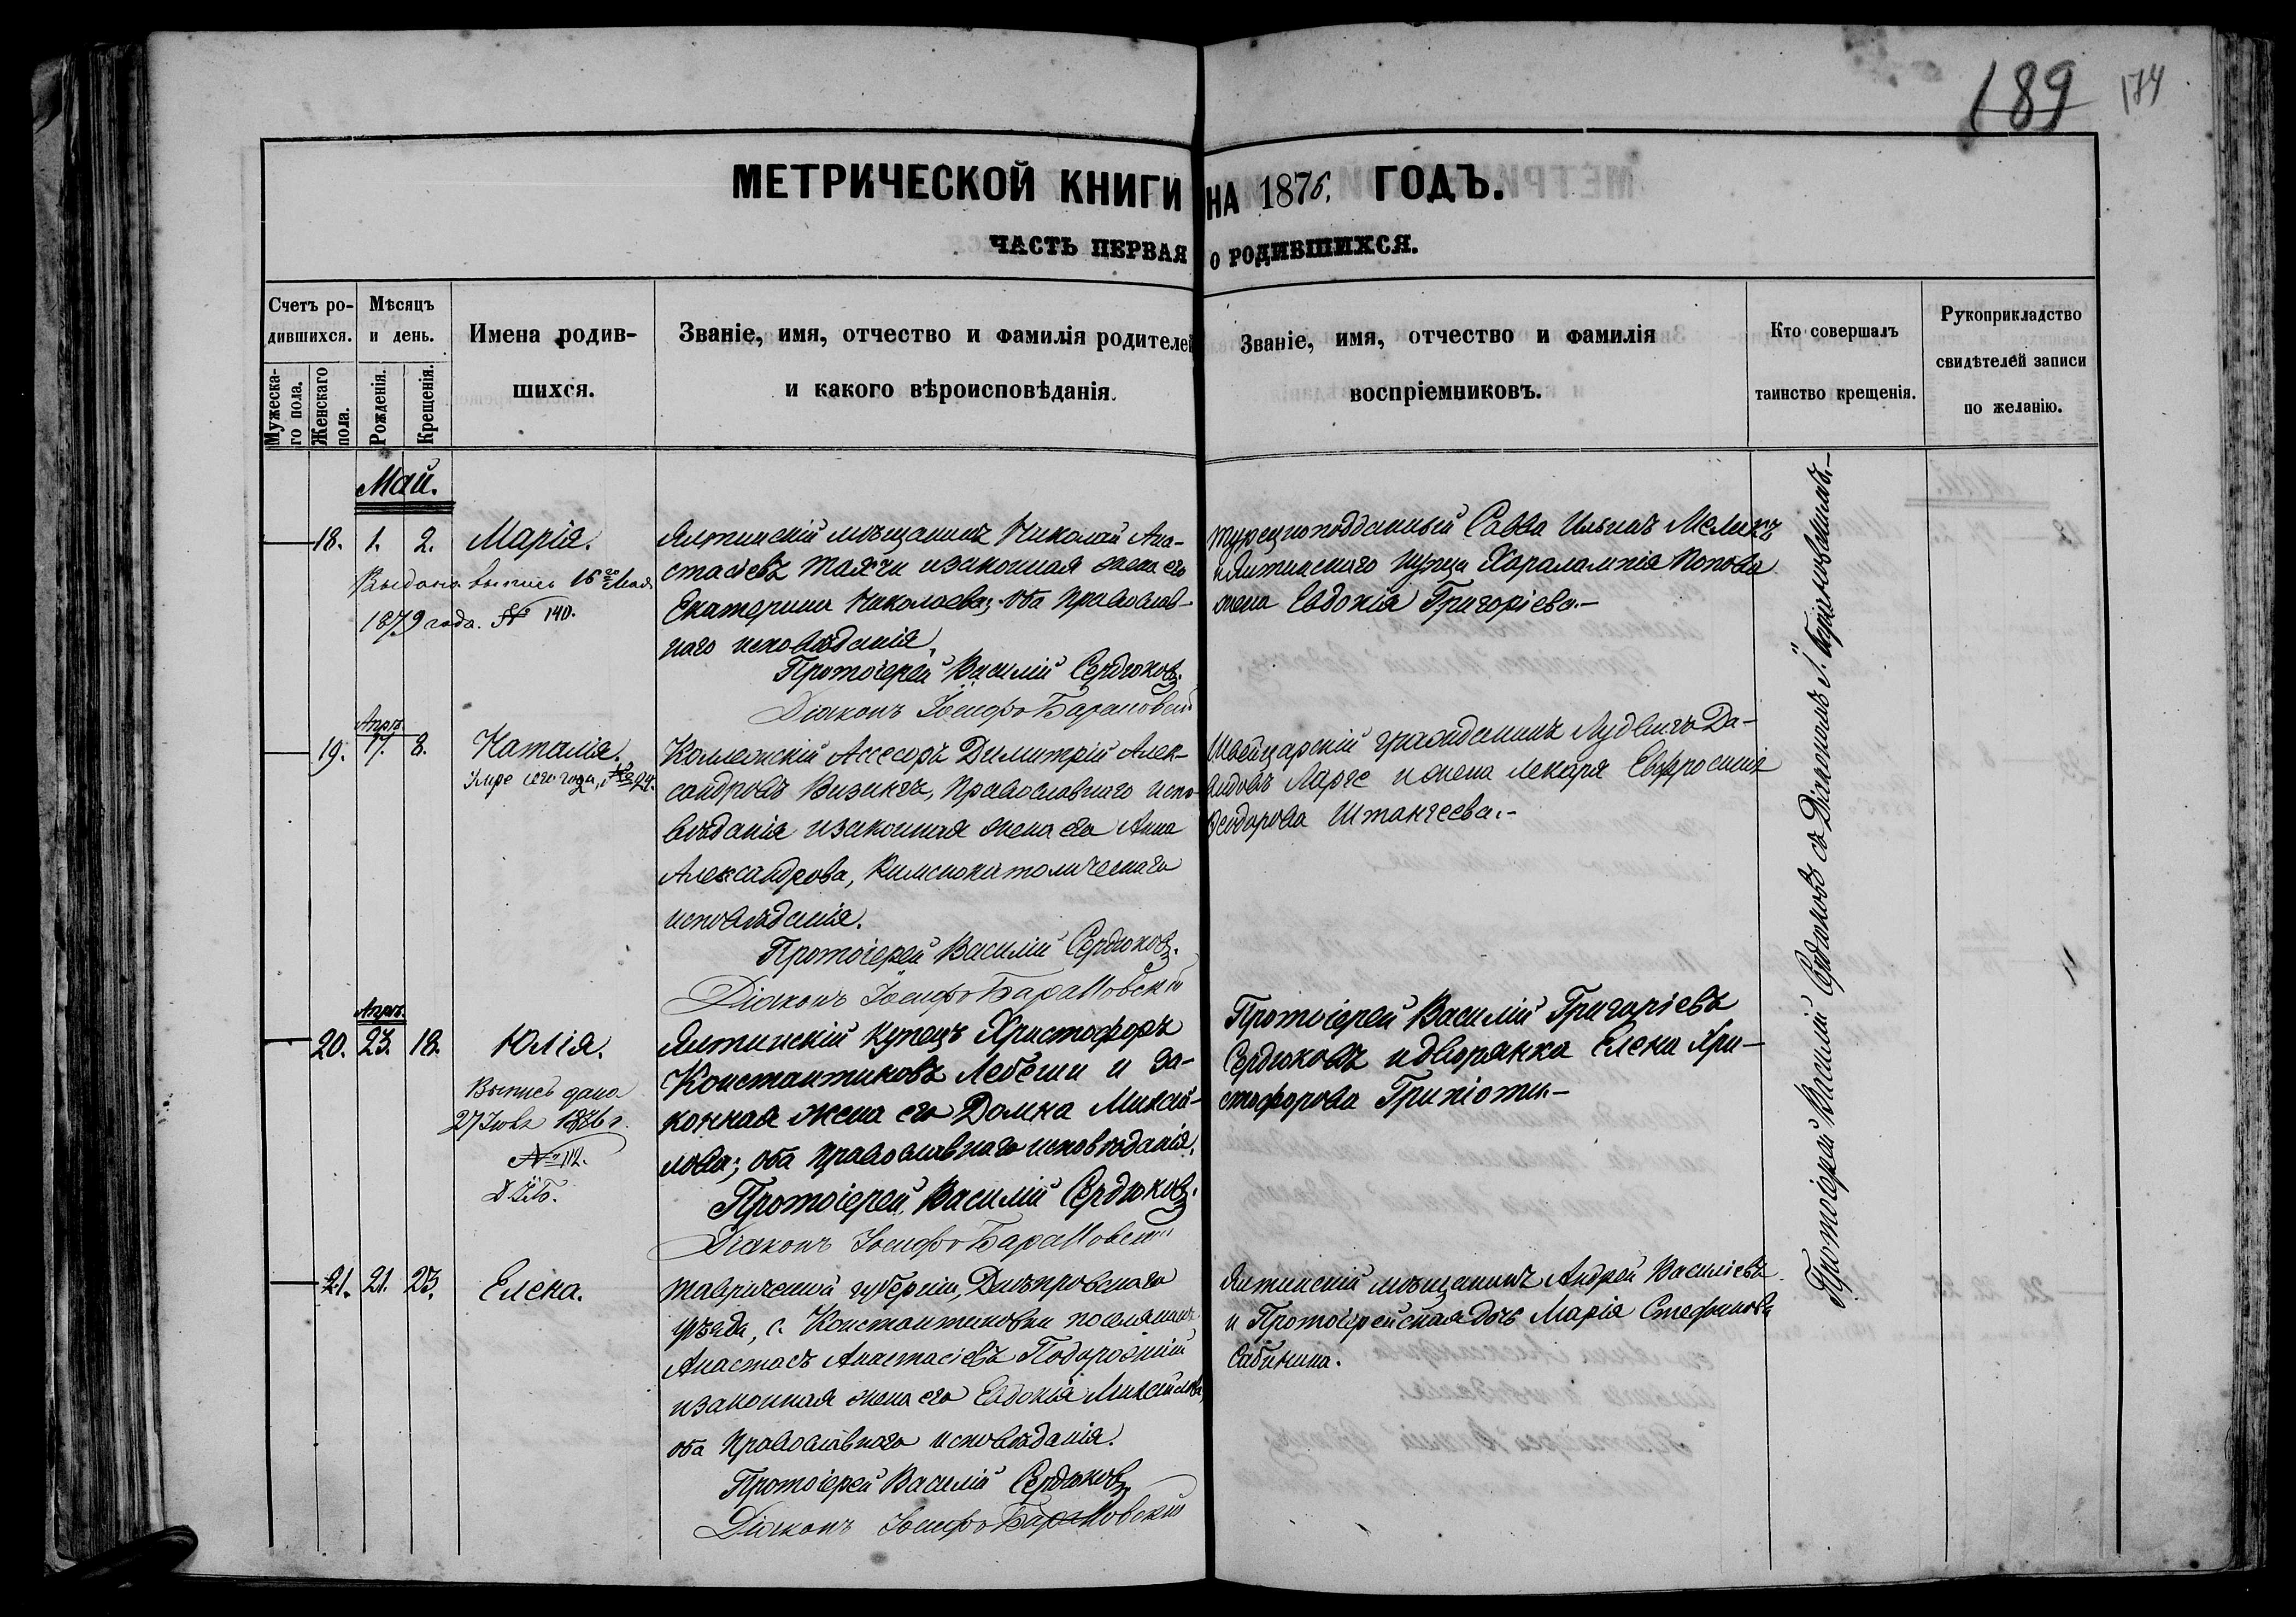 189 174
МЕТРИЧЕСКОЙ КНИГИ НА 1876, ГОДЪ.
ЧАСТЬ ПЕРВАЯ О РОДИВШИХСЯ.
Счетъ ро-
дившихся.
Мужеска-
го пола.
Женскаго
пола.
Мѣсяцъ
и день.
Рожденія.
Крещенія.
Имена родив-
шихся.
Званіе, имя, отчество и фамилія родителей
и какого вѣроисповѣданія.
Званіе, имя, отчество и фамилія
воспріемниковъ.
Кто совершалъ
таинство крещенія.
Рукоприкладство
свидѣтелей записи
по желанію.
Май.
18. 1. 2. Марія.
Выдана выпись 16го Мая
1879 года. № 140.
Ялтинскій мѣщанинъ Николай Ана-
стасіевъ и законная жена его
Екатерина Николаева; оба Православ-
наго исповѣданія.
Протоіерей Василій Сердюковъ.
Діаконъ Іосифъ Барановскій
турецкоподданный Савва Ильинъ
и Ялтинскаго купца Харалампія Попова
жена Евдокія Григоріева.—
Апрѣ.
19. 17. 8. Наталія.
Умре сего года, № 24.
Коллежскій Ассесоръ Димитрій Алек-
сандровъ Визингъ, Православнаго испо-
вѣданія и законная жена его Анна
Александрова, Римскокатолическаго
исповѣданія.
Протоіерей Василій Сердюковъ.
Діаконъ Іосифъ Барановскій
Швейцарскій гражданинъ Лудвигъ Да-
видовъ Ларге и жена лекаря Евфросинія
Ѳеодорова Штангеева.—
Апрѣ.
20. 23. 18. Юлія.
Выпись дана
1876 г.
№ 112.
Ялтинскій купецъ Христофоръ
Константиновъ Лебеши и за-
конная жена его Домна Михай-
лова; оба Православнаго исповѣданія.
Протоіерей Василій Сердюковъ.
Діаконъ Іосифъ Барановскій
Протоіерей Василій Григоріевъ
Сердюковъ и дворянка Елена Хри-
стофорова Грипіоти.—
21. 21. 23. Елена.
Таврической губерніи, Днѣпровскаго
уѣзда, с. Константиновки поселянинъ
Анастасъ Анастасіевъ Подорожній
и законная жена его Евдокія Михайлова,
оба Православнаго исповѣданія.
Протоіерей Василій Сердюковъ.
Діаконъ Іосифъ Барановскій
Ялтинскій мѣщанинъ Андрей Василіевъ
и Протоіерейская дочь Марія Стефанова
Сабинина.
Протоіерей Василій Сердюковъ съ Діакономъ І. Барановскимъ.—